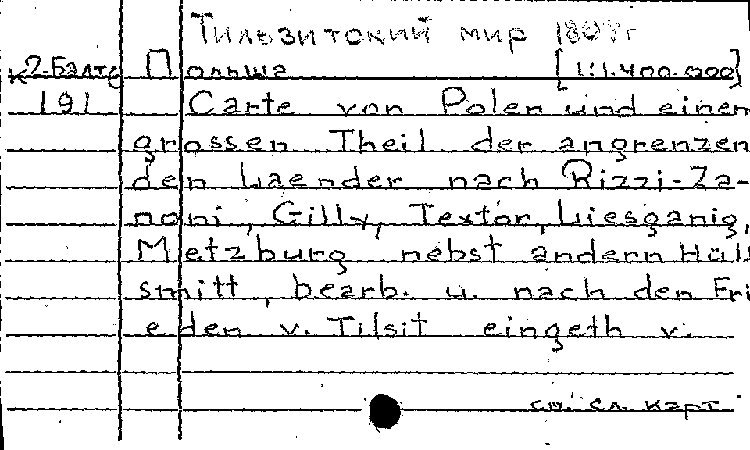 Тильзитский мир 1807г
К2-Балтс Польша [1:1.400.000]
191 Carte von Polen und einem
grossen Theil der angrenzen
den Laender nach Rizzi-Za-
noni, Gilly, Textor, Liesganig,
Metzburg nebst andern Hülf
smitt, bearb. u. nach den Fri
eden v. Tilsit eingeth v.
см. сл. карт.